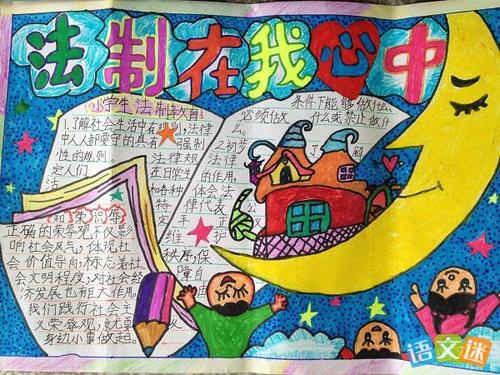 法制在我心中
小学生法制教育
1.了解社会生活中有规则,法律
中人人都要守的具有强制
性的规则
法律规
定人们
在日常生
活
和各种
特定
维护
秩序,保
障自
条件下能够做什么,
必须做什么或禁止做什
么。
2.初步
了解
法律
的作用,
体会法
律代表
平
知荣辱
正确的荣辱观不仅影
响社会风气,体现社
会价值导向,标志着社
会文明程度,对社会经
济发展也有巨大作用。
我们践行社会主
义荣辱观,就要从
身边小事做起。
语文迷